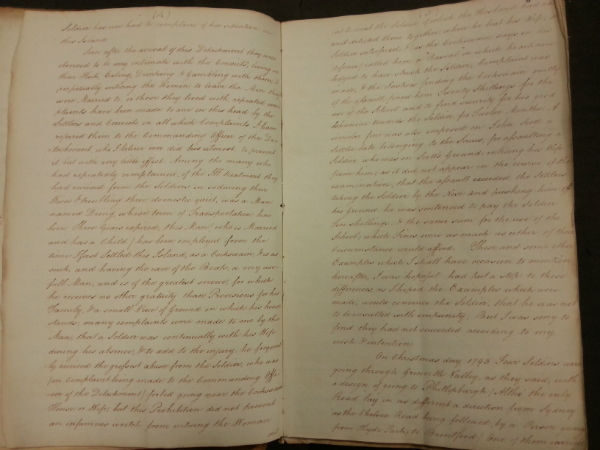 (14)
Soldier has ever had to complain of his situation on
this Island.
Soon after the arrival of this Detachment they were
observed to be very intimate with the Convicts, living in
their Huts, Eating, Drinking & Gambling with them, &
perpetually enticing the Women to leave the Men they
were Married to, or those they lived with; repeated com-
plaints have been made to me on this head by the
Settlers and Convicts in all which Complaints I have
referred them to the Commanding Officer of the De-
tachment who I believe ever did his utmost to prevent
it but with very little effect. Among the many who
had repeatedly complained, of the Ill treatment they
had received from the Soldiers in seducing their
Wives & troubling their domestic quiet, was a Man
named Dring, whose term of Transportation has
been three Years expired; this Man who is Married
and has a Child / has been employed from the
time I first settled this Island, as a Cockswain, & as
such, and having the care of the Boats, a very use-
full Man, and is of the greatest service, for which
he receives no other gratuity than Provisions for his
Family, & a small Piece of Ground on which his house
stands; many complaints were made to me by this
Man, that a Soldier was continually with his Wife
during his absence, & to add to the injury, he frequent-
ly received the grossest abuse from the Soldier, who was
(on complaint being made to the Commanding Offi-
cer of the Detachment) forbid going near the Cockswains
House or Wife; but this Prohibition did not prevent
an infamous wretch from enticing the Woman
out to meet the Soldier
and detected them together, when he beat his Wife, the
Soldier interfered & as the Cockswain says in his
defence, called him a
ledged to have struck the Soldier, Complaint was
made, & the Justices fining the Cockswain
of the Assault, fined him Twenty Shillings for the
use of the School and to find security for his good
behaviour towards the Soldier for Twelve Months. A
similar fine was also imposed on
belonging to the Stores, for assaulting a
Soldier who was in
from him; as it did not appear in the course of the
examination, that the assault exceeded, the Settlers
taking the Soldier by the Nose and pushing him off
his ground, he was sentenced to pay the Soldier
Ten Shillings, & the same sum for the use of the
School, which Fines were as much as either of their
circumstances could afford. These and some other
Examples which I shall have occasion to mention
hereafter, I was hopefull had put a stop to these
differences, as I hoped the Examples which were
made, would convince the Soldier, that he was not
to be insulted with impunity. But I was sorry to
find they had not succeeded according to my
wish & intention.
On Christmas day 1793 Four Soldiers were
going through Grenville Valley, as they said, with
a design of going to Phillipburgh (Altho' the only
Road lay in as different a direction from Sydney
as the Chelsea Road being followed, by a Person going
from Hyde Park to Brentford) One of them carried